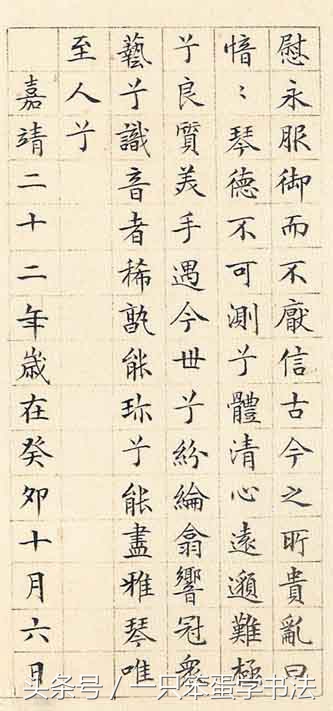 慰永服御而不厭信古今之所貴亂曰
愔〻琴德不可測兮體清心遠邈難極
兮良質美手遇今世兮紛綸翕響冠衆
藝兮識音者稀孰能珎兮能盡雅琴唯
至人兮
嘉靖二十二年歲在癸卯十月六日
头条号／一只笨蛋学书法